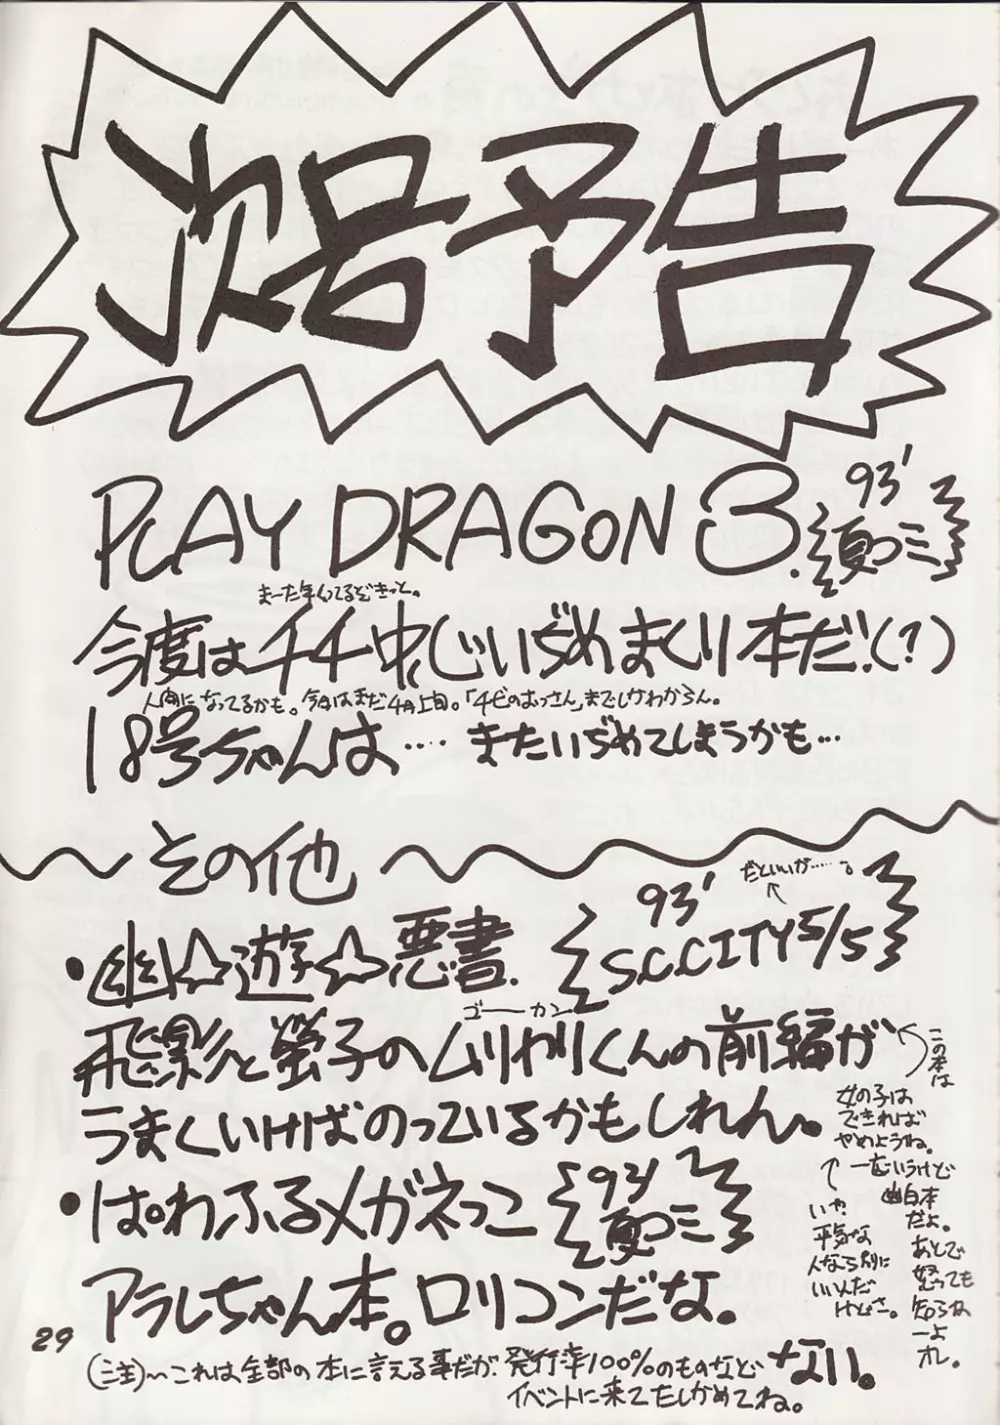 次号予告
PLAY DRAGON 3.
93' 夏コミ
まーた年くってるぞきっと。
今度はチチ中心じいぢめまくり本だ!(?)
人間になってるかも。今日はまだ4月上旬。「チビのおっさん」までしかわからん。
18号ちゃんは…. またいぢめてしまうかも…
その他
•幽☆遊☆悪書.
だといいが……。
93' S.C.CITY 5/5
ゴーカン
飛影と螢子のムリヤリくんの前編が
うまくいけばのっているかもしれん。
この本は
女の子は
できれば
やめようね。
一応いうけど
幽白本
だよ。
あとで
怒っても
知らね
ーよ
オレ。
いや
平気な
人なら別に
いいんだ
けどさ。
•ぱわふるメガネっこ
93' 夏コミ
アラレちゃん本。ロリコンだな。
(注)〜これは全部の本に言える事だが、発行率100%のものなどない。
イベントに来てたしかめてね。
29